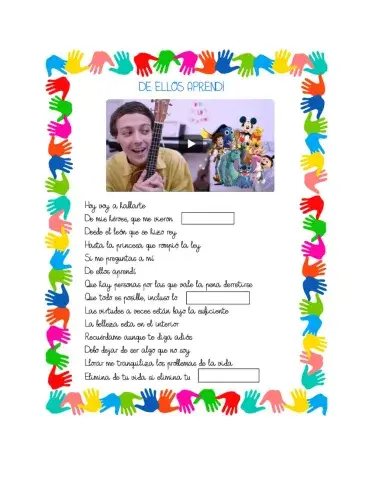 DE ELLOS APRENDÍ
Hoy voy a hablarte
De mis héroes, que me vieron
Desde el león que se hizo rey
Hasta la princesa que rompió la ley
Si me preguntas a mí
De ellos aprendí
Que hay personas por las que vale la pena derretirse
Que todo es posible, incluso lo
Las virtudes a veces están bajo la suficiente
La belleza está en el interior
Recuérdame aunque te diga adiós
Debo dejar de ser algo que no soy
Llorar me tranquiliza los problemas de la vida
Elimina de tu vida si elimina tu